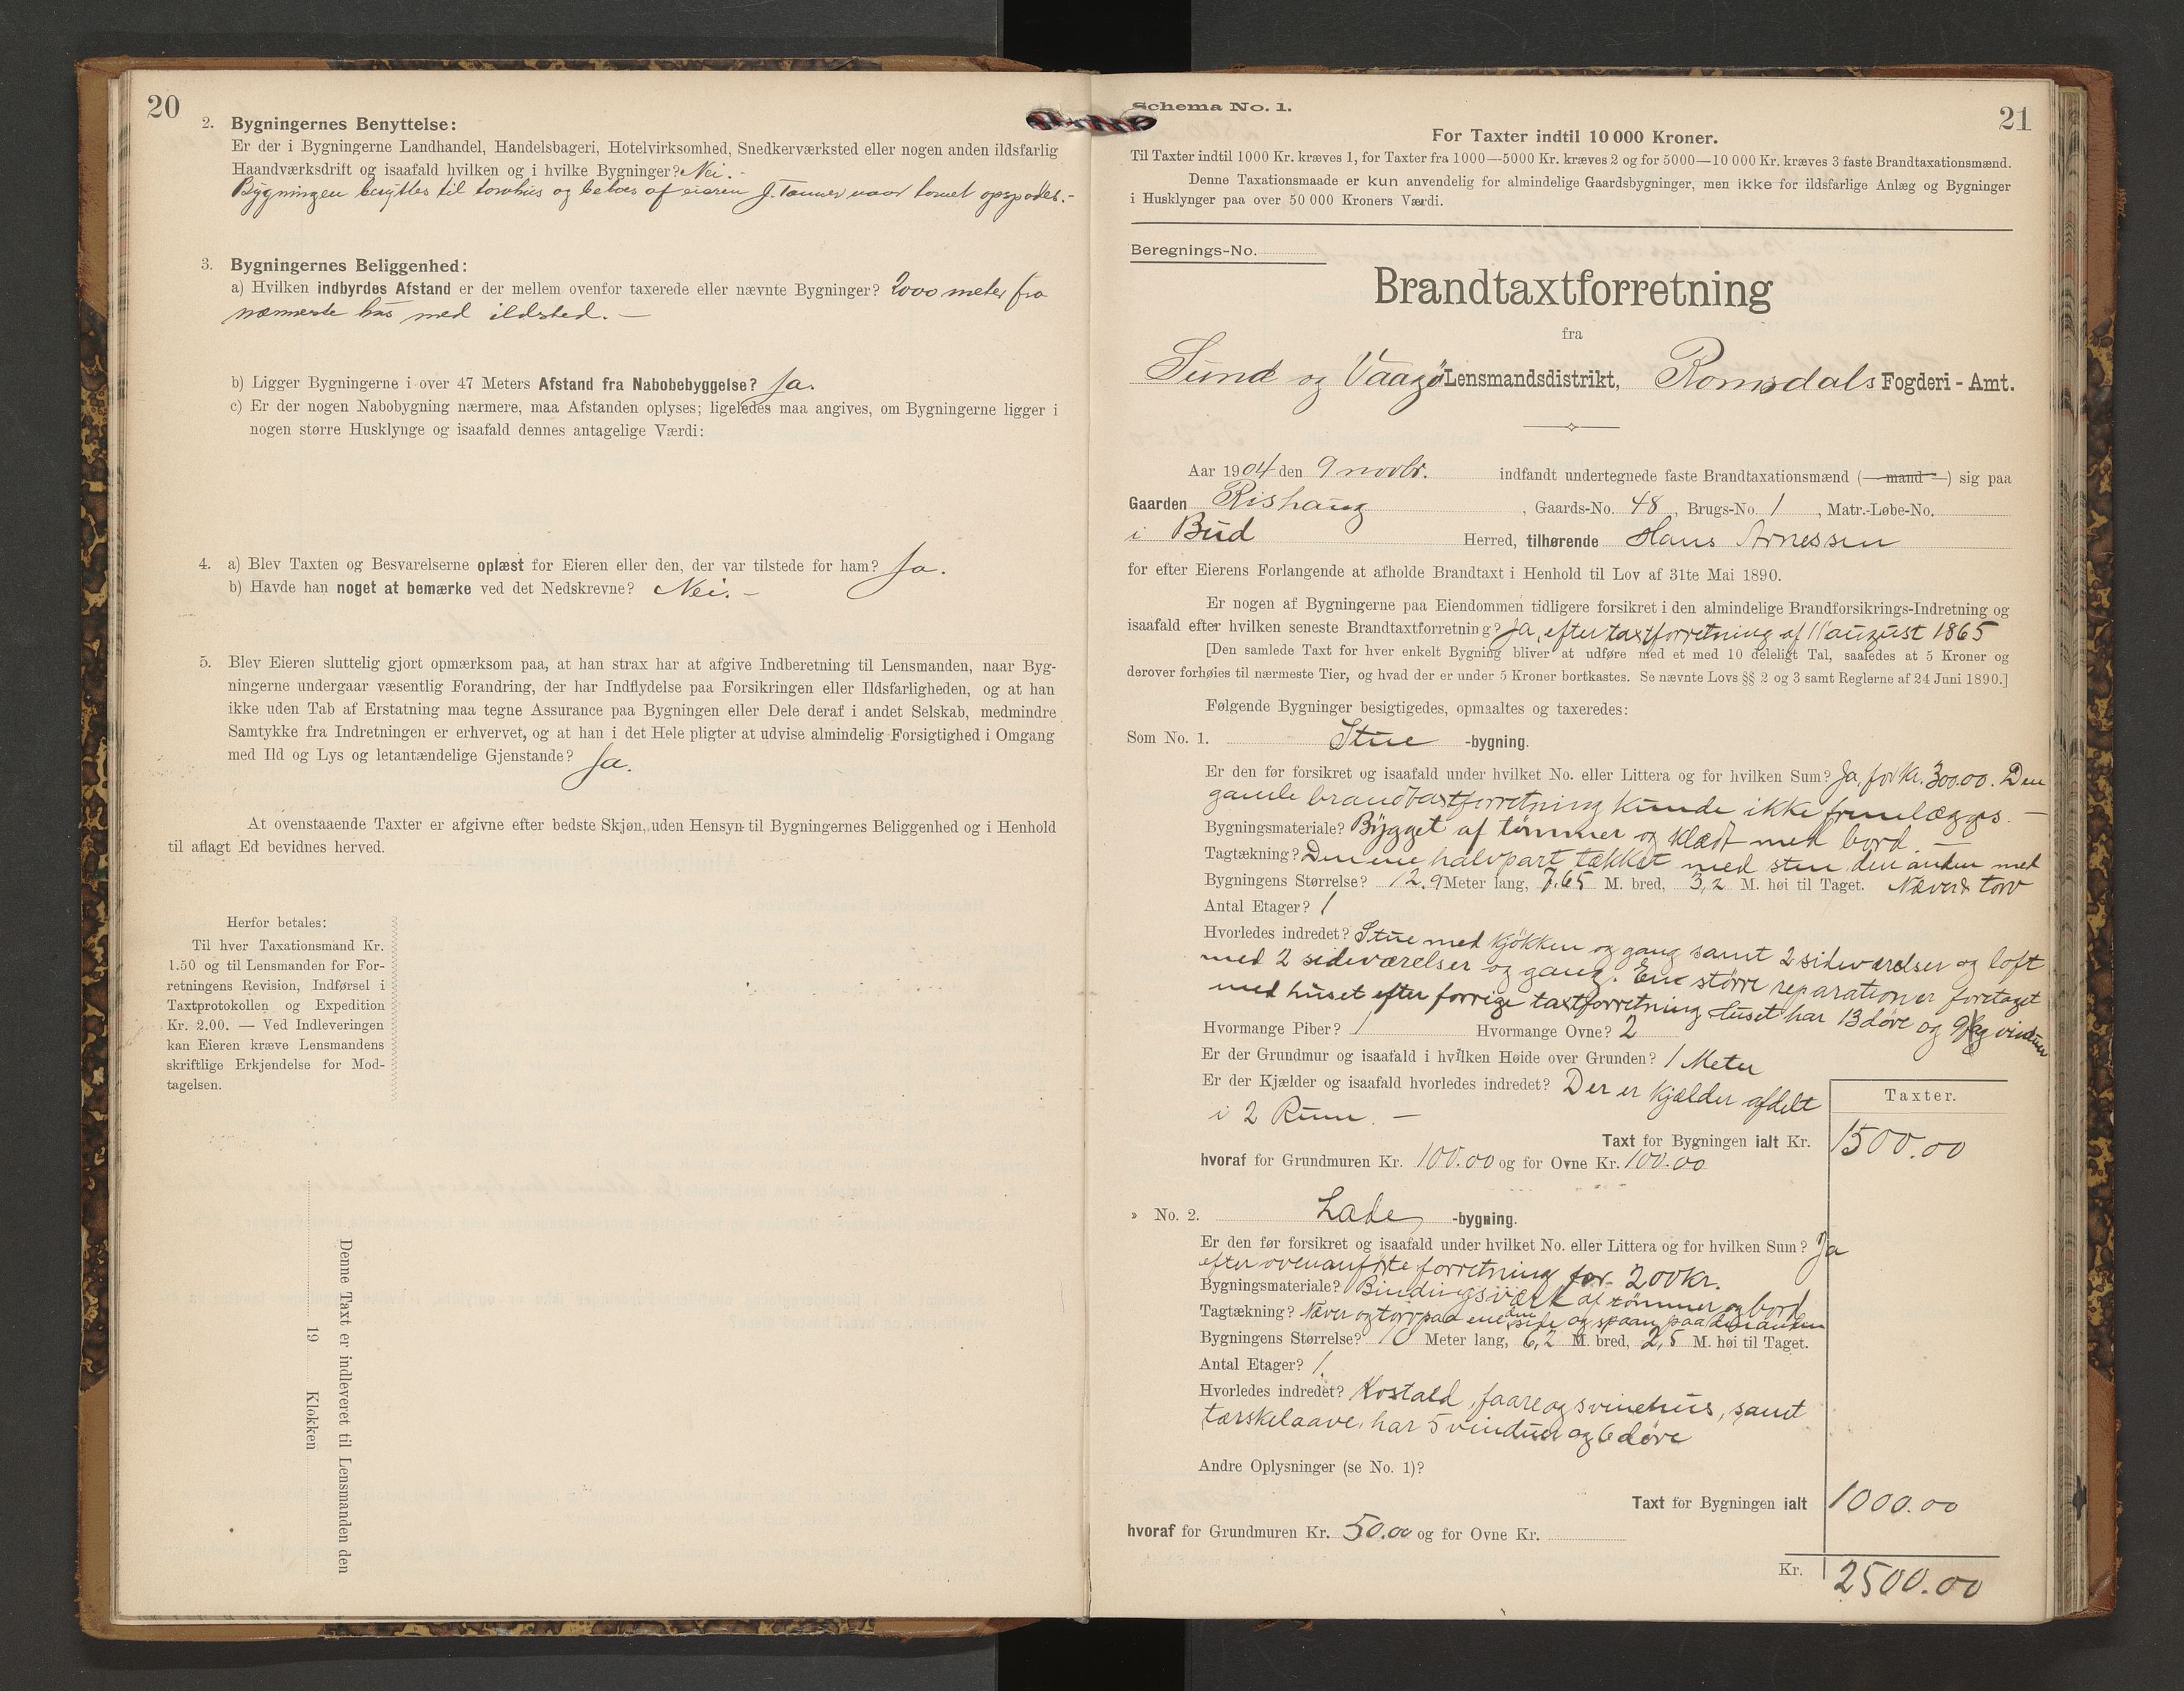 20
2. Bygningernes Benyttelse:
Er der i Bygningerne Landhandel, Handelsbageri, Hotelvirksomhed, Snedkerværksted eller nogen anden ildsfarlig
Haandværksdrift og isaafald hvilken og i hvilke Bygninger? Nei. -
Bygningen benyttes til torvhus og beboes af eieren J. Tanner naar torvet opspades. -
3. Bygningernes Beliggenhed:
a) Hvilken indbyrdes Afstand er der mellem ovenfor taxerede eller nævnte Bygninger? 2000 meter fra
nærmeste hus med ildsted. —
b) Ligger Bygningerne i over 47 Meters Afstand fra Nabobebyggelse? Ja.
c) Er der nogen Nabobygning nærmere, maa Afstanden oplyses; ligeledes maa angives, om Bygningerne ligger i
nogen større Husklynge og isaafald dennes antagelige Værdi:
4. a) Blev Taxten og Besvarelserne oplæst for Eieren eller den, der var tilstede for ham? Ja.
b) Havde han noget at bemærke ved det Nedskrevne? Nei. -
5. Blev Eieren sluttelig gjort opmærksom paa, at han strax har at afgive Indberetning til Lensmanden, naar Byg-
ningerne undergaar væsentlig Forandring, der har Indflydelse paa Forsikringen eller Ildsfarligheden, og at han
ikke uden Tab af Erstatning maa tegne Assurance paa Bygningen eller Dele deraf i andet Selskab, medmindre
Samtykke fra Indretningen er erhvervet, og at han i det Hele pligter at udvise almindelig Forsigtighed i Omgang
med Ild og Lys og letantændelige Gjenstande? Ja.
At ovenstaaende Taxter er afgivne efter bedste Skjøn, uden Hensyn til Bygningernes Beliggenhed og i Henhold
til aflagt Ed bevidnes herved.
Herfor betales:
Til hver Taxationsmand Kr.
1.50 og til Lensmanden for For-
retningens Revision, Indførsel i
Taxtprotokollen og Expedition
Kr. 2.00. — Ved Indleveringen
kan Eieren kræve Lensmandens
skriftlige Erkjendelse for Mod-
tagelsen.
Denne Taxt er indleveret til Lensmanden den
19 Klokken
Schema No. 1.
21
For Taxter indtil 10 000 Kroner.
Til Taxter indtil 1000 Kr. kræves 1, for Taxter fra 1000—5000 Kr. kræves 2 og for 5000—10 000 Kr. kræves 3 faste Brandtaxationsmænd.
Denne Taxationsmaade er kun anvendelig for almindelige Gaardsbygninger, men ikke for ildsfarlige Anlæg og Bygninger
i Husklynger paa over 50 000 Kroners Værdi.
Beregnings-No.
Brandtaxtforretning
fra
Sund og Vaagø Lensmandsdistrikt, Romsdals Fogderi - Amt.
Aar 1904 den 9 novbr. indfandt undertegnede faste Brandtaxationsmænd (— mand —) sig paa
Gaarden Rishaug, Gaards-No. 48, Brugs-No. 1, Matr.-Løbe-No.
i Bud Herred, tilhørende Hans Arnessen
for efter Eierens Forlangende at afholde Brandtaxt i Henhold til Lov af 31te Mai 1890.
Er nogen af Bygningerne paa Eiendommen tidligere forsikret i den almindelige Brandforsikrings-Indretning og
isaafald efter hvilken seneste Brandtaxtforretning? Ja, efter taxtforretning af 11 august 1865
[Den samlede Taxt for hver enkelt Bygning bliver at udføre med et med 10 deleligt Tal, saaledes at 5 Kroner og
derover forhøies til nærmeste Tier, og hvad der er under 5 Kroner bortkastes. Se nævnte Lovs §§ 2 og 3 samt Reglerne af 24 Juni 1890.]
Følgende Bygninger besigtigedes, opmaaltes og taxeredes:
Som No. 1. Stue -bygning.
Er den før forsikret og isaafald under hvilket No. eller Littera og for hvilken Sum? Ja, for Kr. 300.00. Den
gamle brandtaxtforretning kunde ikke fremlægges. —
Bygningsmateriale? Bygget af tømmer og klædt med bord. —
Tagtækning? Den ene halvpart tækket med sten den anden med
Bygningens Størrelse? 12.9 Meter lang, 7.65 M. bred, 3,2 M. høi til Taget. Næver & torv
Antal Etager? 1
Hvorledes indredet? Stue med kjøkken og gang samt 2 sideværelser og loft
med 2 sideværelser og gang. Ene större reparation er foretaget
med huset efter forrige taxtforretning Huset har 13 døre og 9 fag vinduer
Hvormange Piber? 1 Hvormange Ovne? 2
Er der Grundmur og isaafald i hvilken Høide over Grunden? 1 Meter
Er der Kjælder og isaafald hvorledes indredet? Der er kjælder afdelt
i 2 Rum. —
Taxter.
Taxt for Bygningen ialt Kr. 1500.00
hvoraf for Grundmuren Kr. 100.00 og for Ovne Kr. 100.00
» No. 2. Lade -bygning.
Er den før forsikret og isaafald under hvilket No. eller Littera og for hvilken Sum? Ja
efter ovenanførte forretning for 200 kr.
Bygningsmateriale? Bindingsværk af tömmer og bord
Tagtækning? Næver og torv paa den ene side og spaan paa den anden
Bygningens Størrelse? 10 Meter lang, 6,2 M. bred, 2,5 M. høi til Taget.
Antal Etager? 1.
Hvorledes indredet? Kostald, faare og svinehus, samt
tærskelaave, har 5 vinduer og 6 døre
Andre Oplysninger (se No. 1)?
Taxt for Bygningen ialt 1000.00
hvoraf for Grundmuren Kr. 50.00 og for Ovne Kr.
Kr. 2500.00